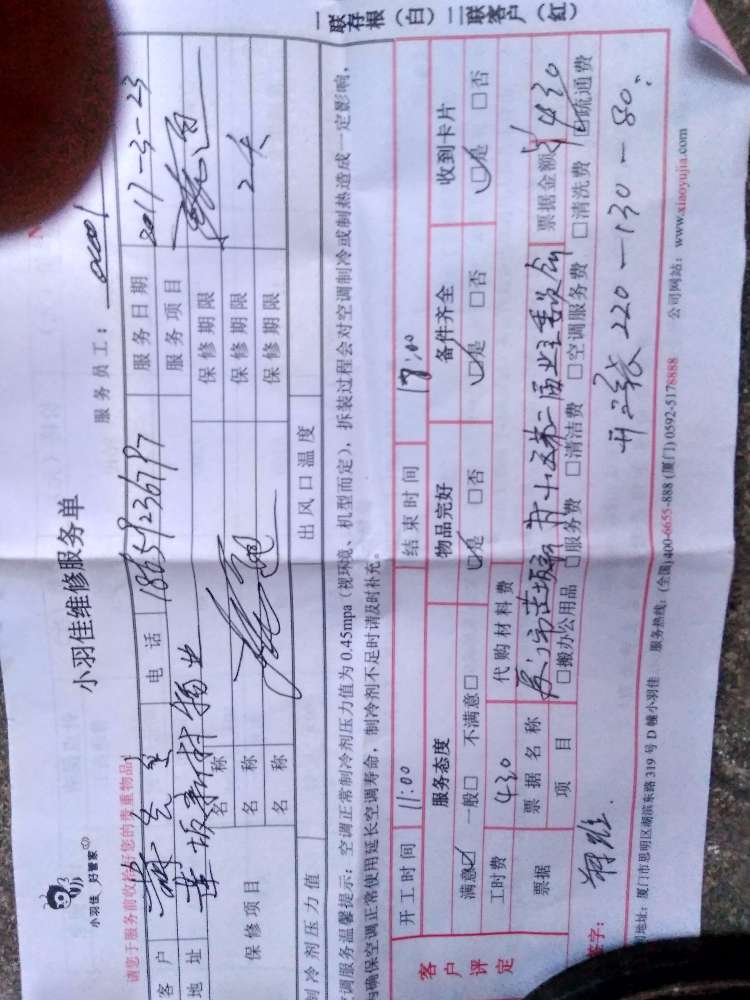 一联存根（白）二联客户（红）
小羽佳维修服务单
小羽佳 好管家
请您于服务前收拾好您的贵重物品
服务员工：
客户 电话 服务日期 2017-3-23
地址 莲坂新村物业 服务项目
保修项目 名称 保修期限
名称 保修期限 2天
名称 保修期限
制冷剂压力值 出风口温度
空调服务温馨提示：空调正常制冷剂压力值为0.45mpa（视环境、机型而定），拆装过程会对空调制冷或制热造成一定影响，
为确保空调正常使用延长空调寿命，制冷剂不足时请及时补充。
开工时间 11:00 结束时间
客户评定 服务态度 物品完好 备件齐全 收到卡片
满意☑ 一般□ 不满意□ ☑是 □否 ☑是 □否 ☑是 □否
工时费 430 代购材料费 票据金额 430
票据 票据名称
项目 □搬办公用品 □服务费 □清洁费 □空调服务费 □清洗费 ☑疏通费
签字： 开三张 220-130-80.
地址：厦门市思明区湖滨东路319号D幢小羽佳 服务热线：(全国)400-6655-888 (厦门) 0592-5178888 公司网站：www.xiaoyujia.com